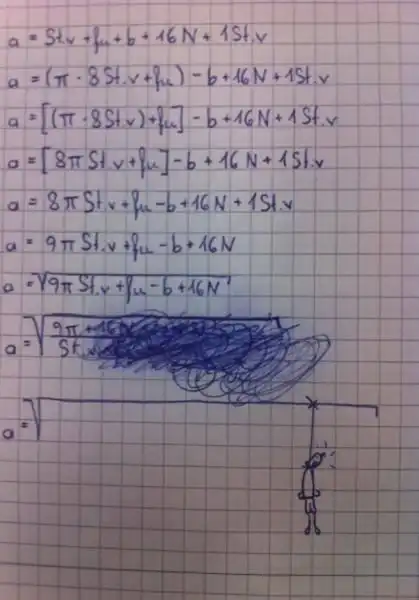 a = St.v + fu + b + 16N + 1St.v
a = (π · 8St.v + fu) - b + 16N + 1St.v
a = [(π · 8St.v) + fu] - b + 16N + 1St.v
a = [8π St.v + fu] - b + 16N + 1St.v
a = 8π St.v + fu - b + 16N + 1St.v
a = 9π St.v + fu - b + 16N
a = √9π St.v + fu - b + 16N
a = √9π + 16
St.
a = √